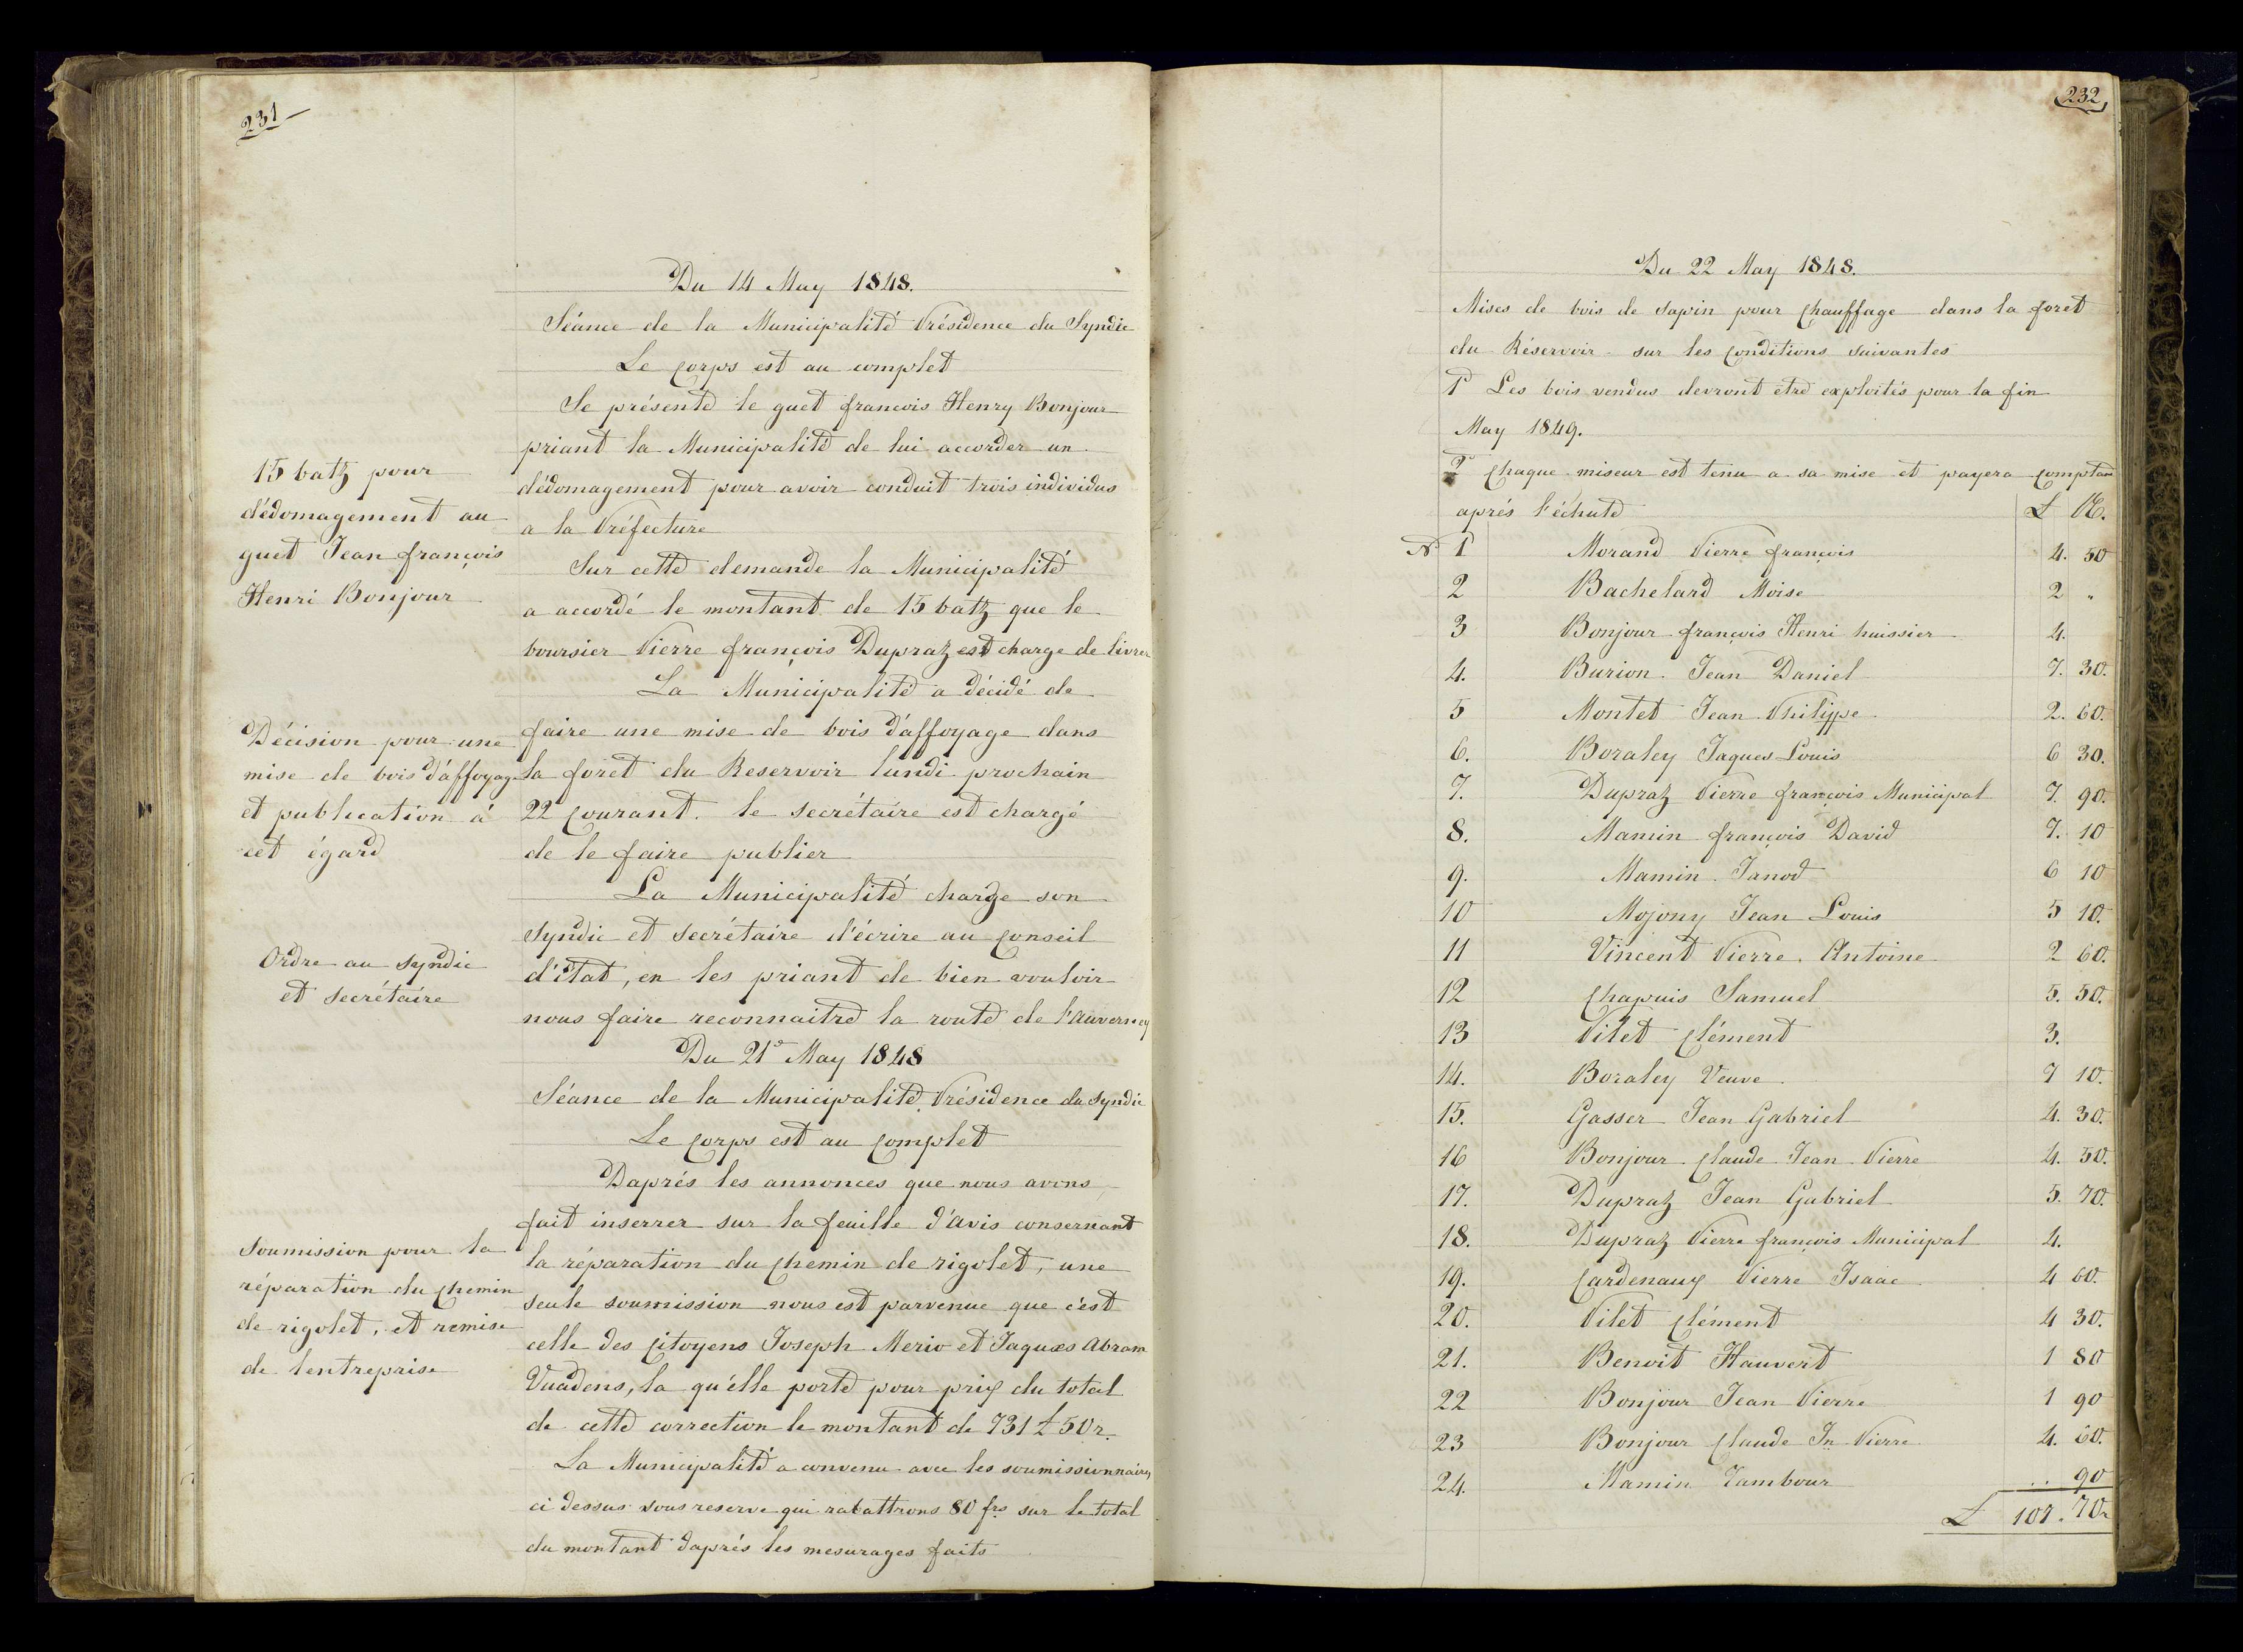 231
Du 14 May 1848.
Séance de la Municipalité Présidence du Syndic
Le Corps est au complet
Se présente le guet françois Henry Bonjour
priant la Municipalité de lui accorder un
dédomagement pour avoir conduit trois individus
a la Préfecture
15 batz pour
dédomagement au
guet Jean françois
Henri Bonjour
Sur cette demande la Municipalité
a accordé le montant de 15 batz que le
boursier Pierre françois Dupraz est charge de livrer
La Municipalité a décidé de
faire une mise de bois d'affoyage dans
la foret du Reservoir lundi prochain
22 Courant. le secrétaire est chargé
de le faire publier
Décision pour une
mise de bois d'affoyage
et publication à
cet égard
La Municipalité charge son
Syndic et Secrétaire d'écrire au Conseil
d'état, en les priant de bien vouloir
nous faire reconnaitre la route de l'Auverney
Ordre au Syndic
et Secrétaire
Du 21e May 1848
Séance de la Municipalité, Présidence du Syndic
Le Corps est au Complet
Daprés les annonces que nous avons
fait inserrer sur la feuille d'avis consernant
la réparation du Chemin de rigolet, une
seule soumission nous est parvenue que c'est
celle des Citoyens Joseph Merio et Jaques Abram
Vuadens, la qu'elle porte pour prix du total
de cette correction le montant de 731 £ 50 r.
Soumission pour la
réparation du Chemin
de rigolet, et remise
de l'entreprise
La Municipalité a convenu avec les soumissionnaires
ci dessus sous reserve qui rabattrons 80 frs sur le total
du montant daprés les mesurages faits
232
Du 22 May 1848.
Mises de bois de Sapin pour Chauffage dans la foret
du Réservoir sur les Conditions suivantes
1° Les bois vendus devront être exploités pour la fin
May 1849.
2° Chaque miseur est tenu a sa mise et payera Comptan
aprés l'échute £ R.
N° 1 Morand Pierre françois 4. 50
2 Bachelard Moise 2 "
3 Bonjour françois Henri huissier 4.
4. Burion Jean Daniel 7. 30.
5 Montet Jean Philippe 2. 60.
6. Boraley Jaques Louis 6 30.
7. Dupraz Pierre françois Municipal 7. 90.
8. Mamin françois David 7. 10
9. Mamin Janod 6 10
10 Mojony Jean Louis 5 10.
11 Vincent Pierre Antoine 2 60.
12 Chapuis Samuel 5. 50.
13 Pilet Clément 3.
14. Boraley Veuve 7 10.
15. Gasser Jean Gabriel 4. 30.
16 Bonjour Claude Jean Pierre 4. 50.
17. Dupraz Jean Gabriel 5. 70.
18. Dupraz Pierre françois Municipal 4.
19. Cardenaux Pierre Isaac 4 60.
20. Pilet Clément 4 30.
21. Benoit Hauvert 1 80
22 Bonjour Jean Pierre 1 90
23 Bonjour Claude Jn Pierre 4. 60.
24. Mamin Tambour .. 90
£ 107. 70r